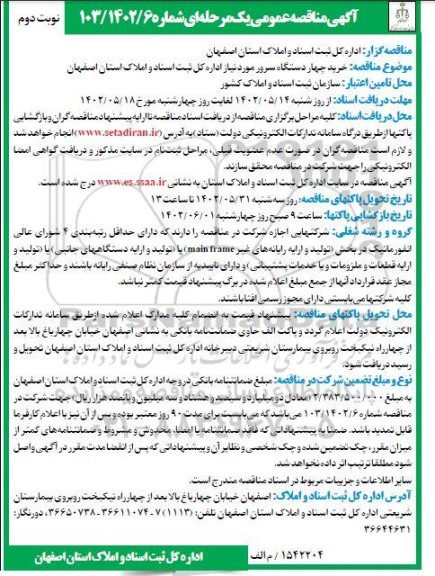 آگهی مناقصه عمومی یک مرحله‌ای شماره ۱۰۳/۱۴۰۲/۶
نوبت دوم
مناقصه گزار: اداره کل ثبت اسناد و املاک استان اصفهان
موضوع مناقصه: خرید چهار دستگاه سرور مورد نیاز اداره کل ثبت اسناد و املاک استان اصفهان
محل تامین اعتبار: سازمان ثبت اسناد و املاک کشور
مهلت دریافت اسناد: از روز شنبه ۱۴۰۲/۰۵/۱۴ لغایت روز چهارشنبه مورخ ۱۴۰۲/۰۵/۱۸
محل دریافت اسناد: کلیه مراحل برگزاری مناقصه از دریافت اسناد مناقصه تا ارایه پیشنهاد مناقصه گران و بازگشایی
پاکتها از طریق درگاه سامانه تدارکات الکترونیکی دولت (ستاد) به آدرس (www.setadiran.ir) انجام خواهد شد
و لازم است مناقصه گران در صورت عدم عضویت قبلی، مراحل ثبت نام در سایت مذکور و دریافت گواهی امضا
الکترونیکی را جهت شرکت در مناقصه محقق سازند.
آگهی مناقصه در سایت اداره کل ثبت اسناد و املاک استان به نشانی www.es.ssaa.ir درج شده است.
تاریخ تحویل پاکتهای مناقصه: روز سه شنبه ۱۴۰۲/۰۵/۳۱ تا ساعت ۱۳
تاریخ بازگشایی پاکتها: ساعت ۹ صبح روز چهارشنبه ۱۴۰۲/۰۶/۰۱
گروه و رشته شغلی: شرکتهایی اجازه شرکت در مناقصه را دارند که دارای حداقل رتبه‌بندی ۴ شورای عالی
انفورماتیک در بخش (تولید و ارایه رایانه‌های غیر main frame) یا (تولید و ارایه دستگاههای جانبی) یا (تولید و
ارایه قطعات و ملزومات و یا خدمات پشتیبانی) و دارای تاییدیه از سازمان نظام صنفی رایانه باشند و حداکثر مبلغ
مجاز عقد قرارداد آنها از جمع مبلغ اعلام شده در برگ پیشنهاد قیمت کمتر نباشد.
کلیه شرکتها می‌بایستی دارای مجوز رسمی افتا باشند.
محل تحویل پاکتهای مناقصه: پیشنهاد قیمت به انضمام کلیه مدارک اعلام شده از طریق سامانه تدارکات
الکترونیک دولت اعلام گردد و پاکت الف حاوی ضمانت‌نامه بانکی به نشانی اصفهان خیابان چهارباغ بالا بعد
از چهارراه نیکبخت روبروی بیمارستان شریعتی دبیرخانه اداره کل ثبت اسناد و املاک استان اصفهان تحویل و
رسید دریافت شود.
نوع و مبلغ تضمین شرکت در مناقصه: مبلغ ضمانتنامه بانکی در وجه اداره کل ثبت اسناد و املاک استان اصفهان
به مبلغ ۲/۳۸۳/۵۰۰/۰۰۰ (معادل دو میلیارد و سیصد و هشتاد و سه میلیون و پانصد هزار ریال) جهت شرکت در
مناقصه شماره ۱۰۳/۱۴۰۲/۶ می باشد که می بایست برای مدت ۹۰ روز معتبر بوده و پس از آن نیز با اعلام کارفرما
قابل تمدید باشد. ضمنا به پیشنهاداتی که فاقد ضمانتنامه یا امضا، مخدوش و مشروط و ضمانتنامه‌های کمتر از
میزان مقرر، چک تضمین شده و چک شخصی و نظایر آن و پیشنهاداتی که پس از انقضا مدت مقرر در آگهی واصل
شود مطلقا ترتیب اثر داده نخواهد شد.
سایر اطلاعات و جزییات مربوط در اسناد مناقصه مندرج است.
آدرس اداره کل ثبت اسناد و املاک: اصفهان خیابان چهارباغ بالا بعد از چهارراه نیکبخت روبروی بیمارستان
شریعتی اداره کل ثبت اسناد و املاک استان اصفهان تلفن: (۱۱۱۳) ۷-۳۶۶۱۱۰۷۴ - ۳۶۶۵۰۷۳۸، دورنگار:
۳۶۶۴۴۶۳۱
۱۵۴۲۲۰۴ / م الف
اداره کل ثبت اسناد و املاک استان اصفهان